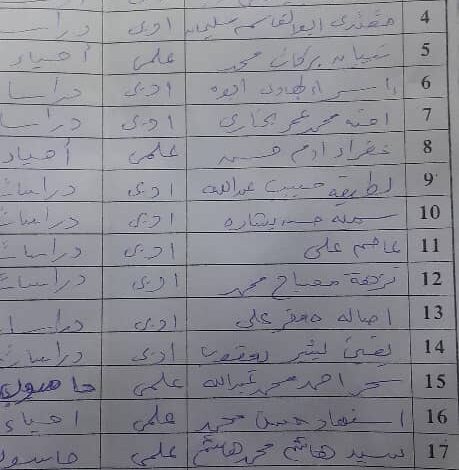 4 مقتدى ابو القاسم سليمان ادبى دراسا
5 بركات محمد علمي أحياء
6 إسراء الهادى ادبى دراسا
7 امنه محمد عمر بخارى ادبى دراسا
8 خضراء ادم حسن علمي أحياء
9 لطيفه حبيب عبدالله ادبى دراسات
10 سميه حسن بشاره ادبى دراسات
11 عاصم على ادبى دراسات
12 نزهة مصباح محمد ادبى دراسات
13 اصاله جعفر على ادبى دراسا
14 يقين بشير يعقوب ادبى دراسات
15 سحر احمد محمد عبدالله علمي حاسوب
16 استشهاد حسن محمد علمي احياء
17 سيد هاشم محمد هاشم علمي حاسو